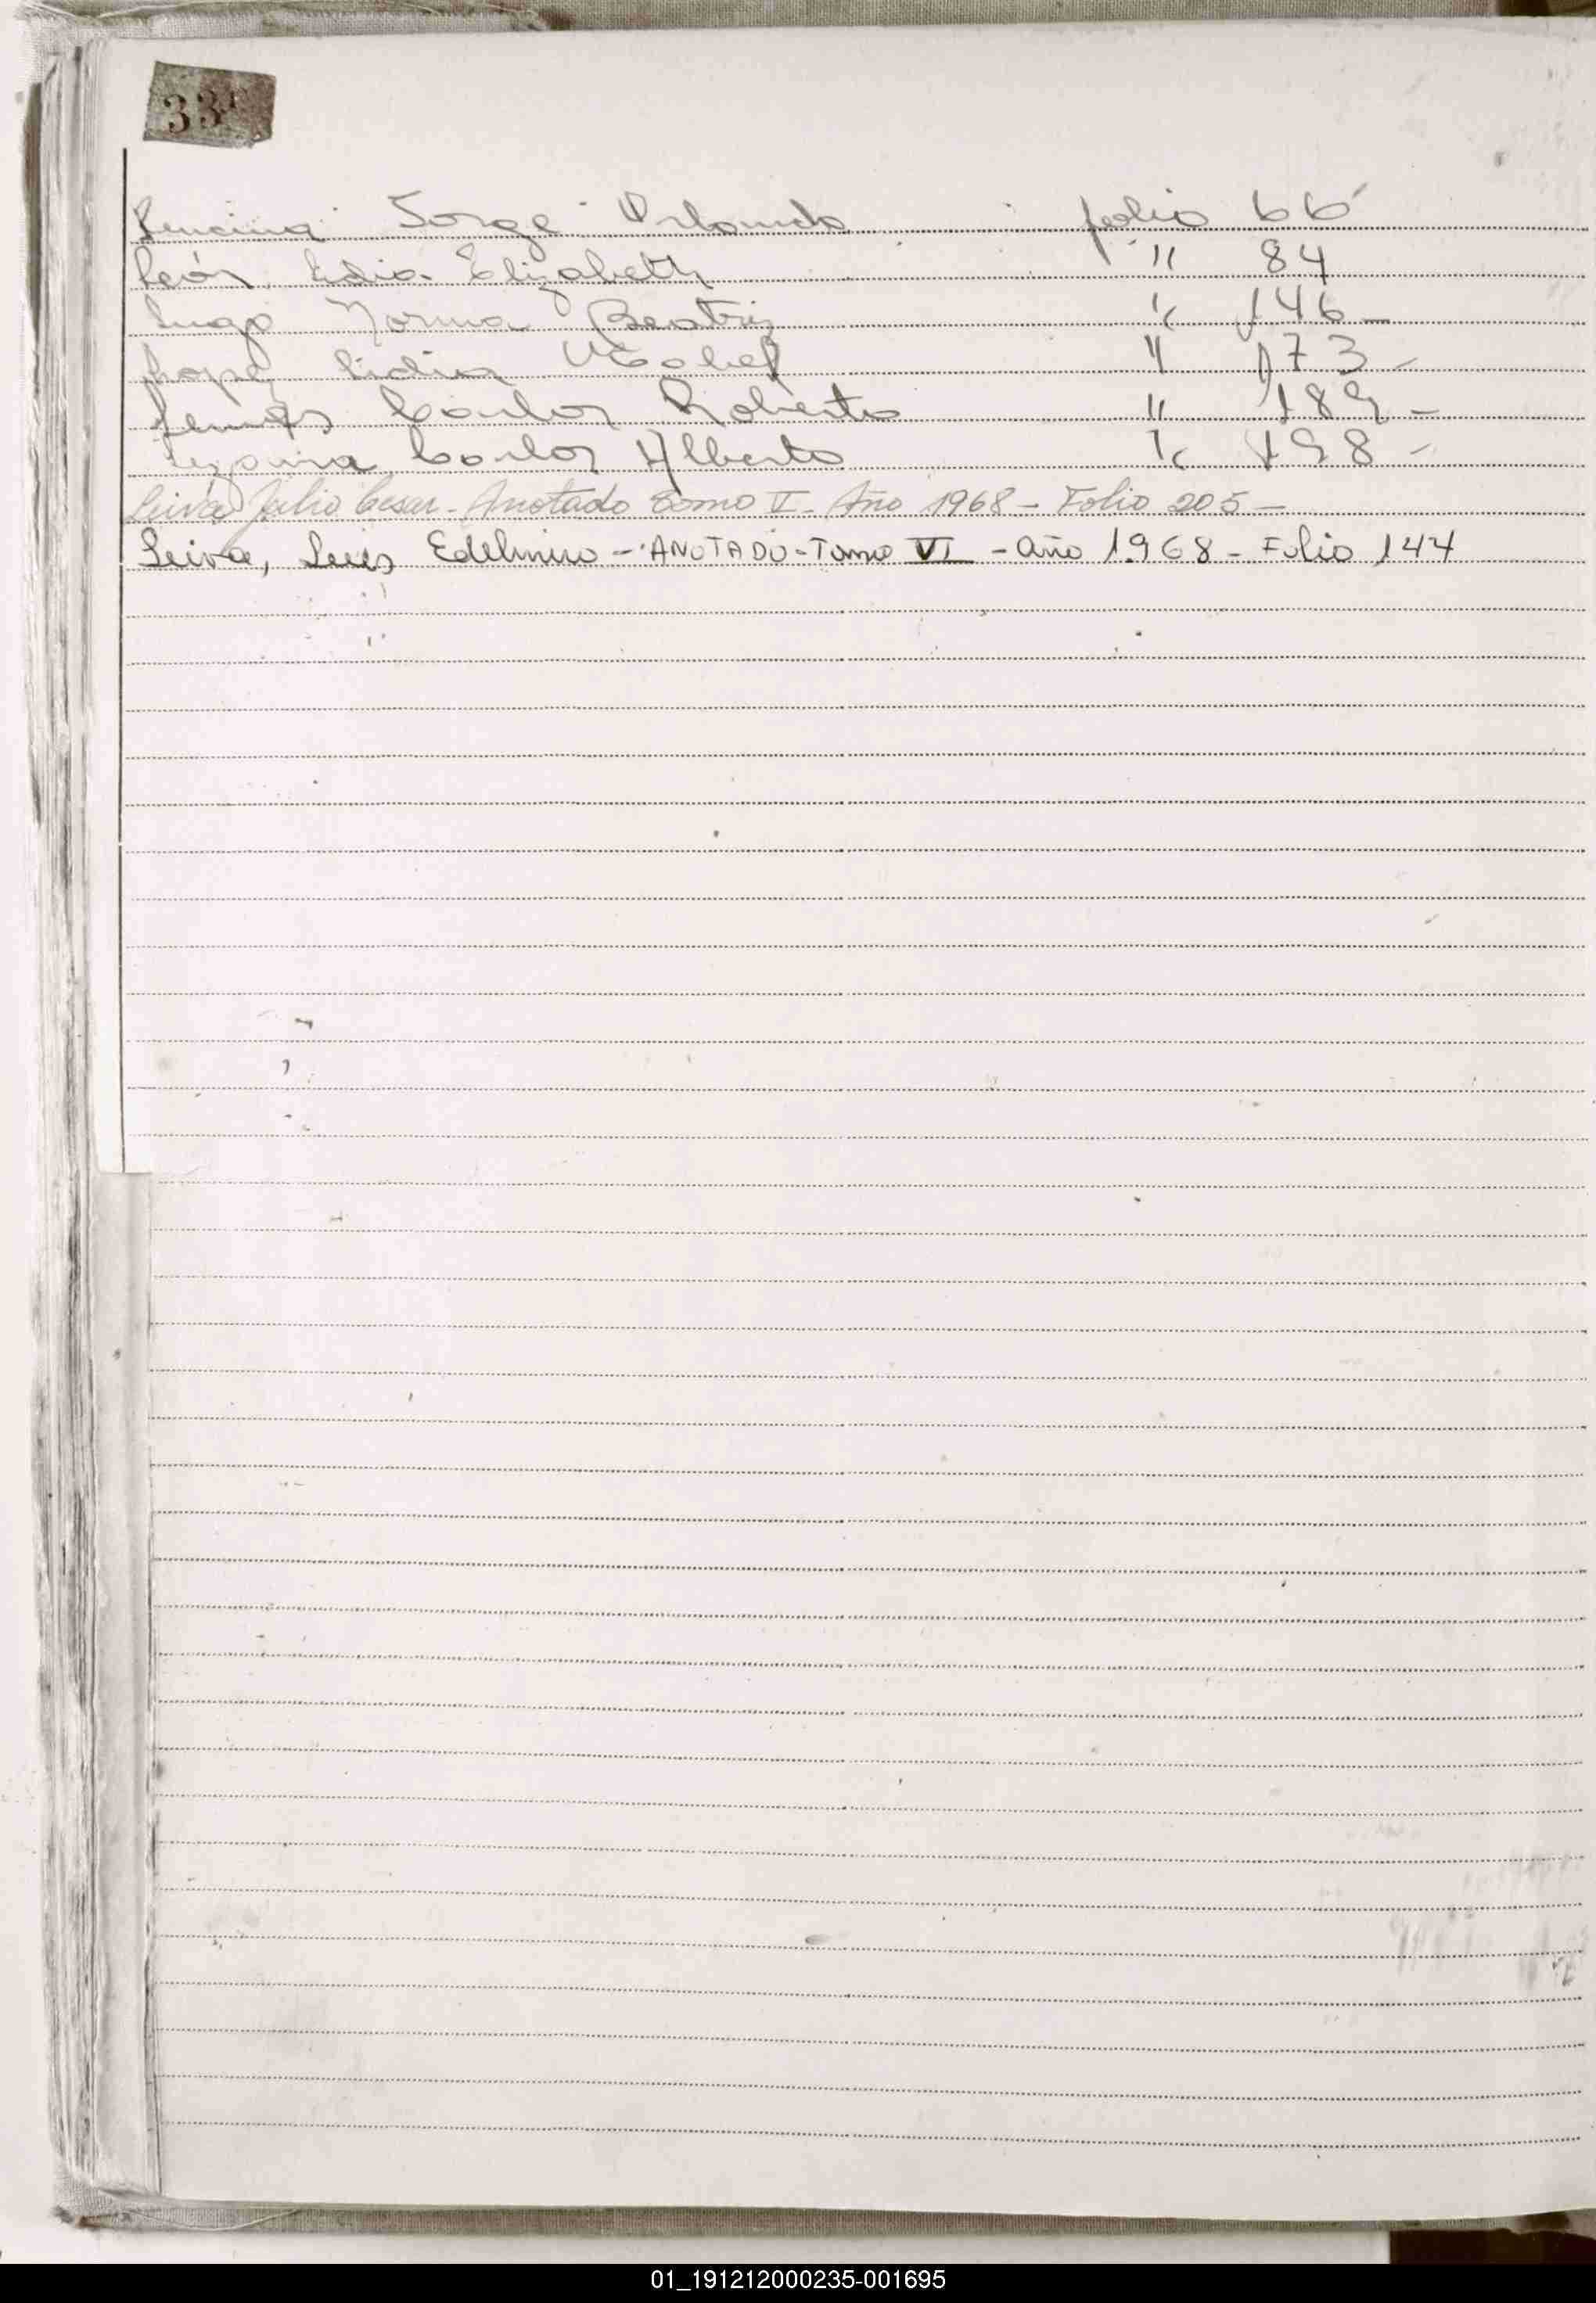 33
Lencina Jorge Orlando folio 66
León Lidia Elizabeth " 84
Lugo Norma Beatriz " 146 -
Lopez Lidia Mabel " 173 -
Carlos Roberto " 189 -
Carlos Alberto " 198 -
Leiva Julio Cesar - Anotado Tomo V - Año 1968 - Folio 205 -
Leiva, Luis Edelmiro - ANOTADO - Tomo VI - Año 1968 - Folio 144
01_191212000235-001695